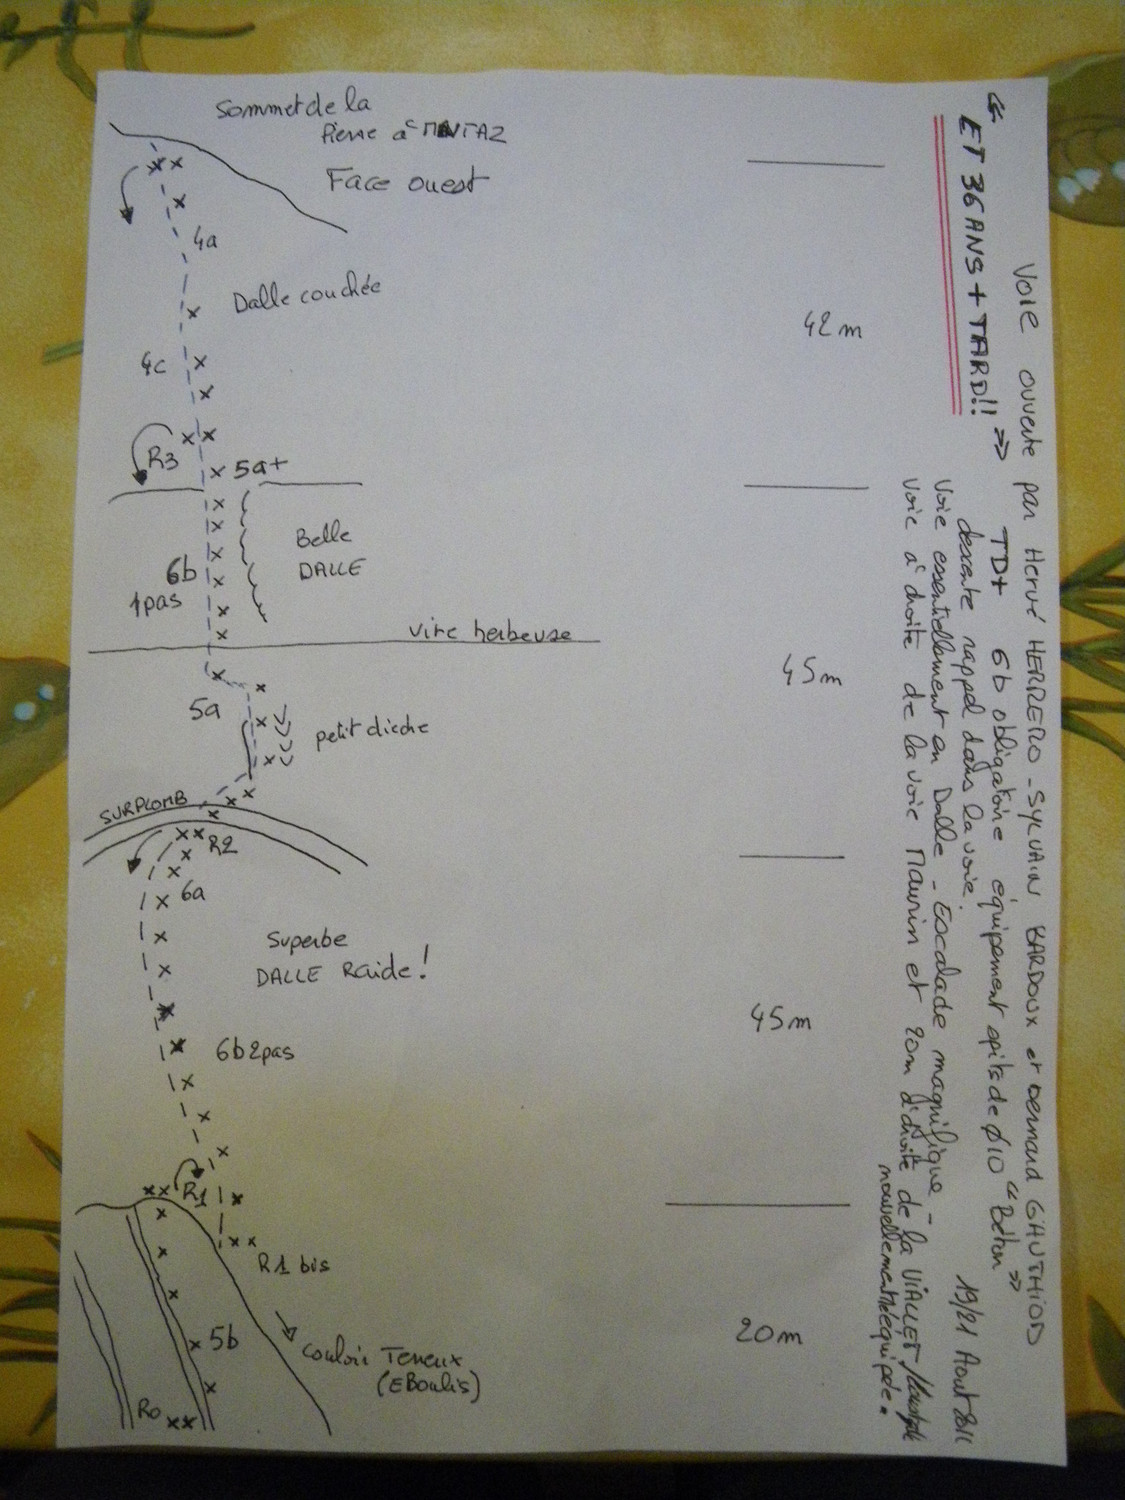 Sommet de la
Pierre à MNTAZ
Face ouest
4a
Dalle couchée
42m
4c
R3
5a+
Belle
DALLE
6b
1pas
vire herbeuse
45m
5a
petit diedre
SURPLOMB
R2
6a
Superbe
DALLE Raide!
45m
6b2pas
R1
R1 bis
20m
5b
Couloir Terreux
(EBoulis)
R0
Voie ouverte par Hervé HERRERO - SYLVAIN BARDOUX et Bernard GAUTHIOD
« ET 36 ANS + TARD!! » TD+ 6b obligatoire équipement spits de ø10 "Béton"
descente rappel dans la voie. 19/21 Aout 2011
Voie essentiellement en Dalle - Escalade magnifique -
voie à droite de la voie Maurin et 20m à droite de la VIALLET/
nouvellement rééquipée.